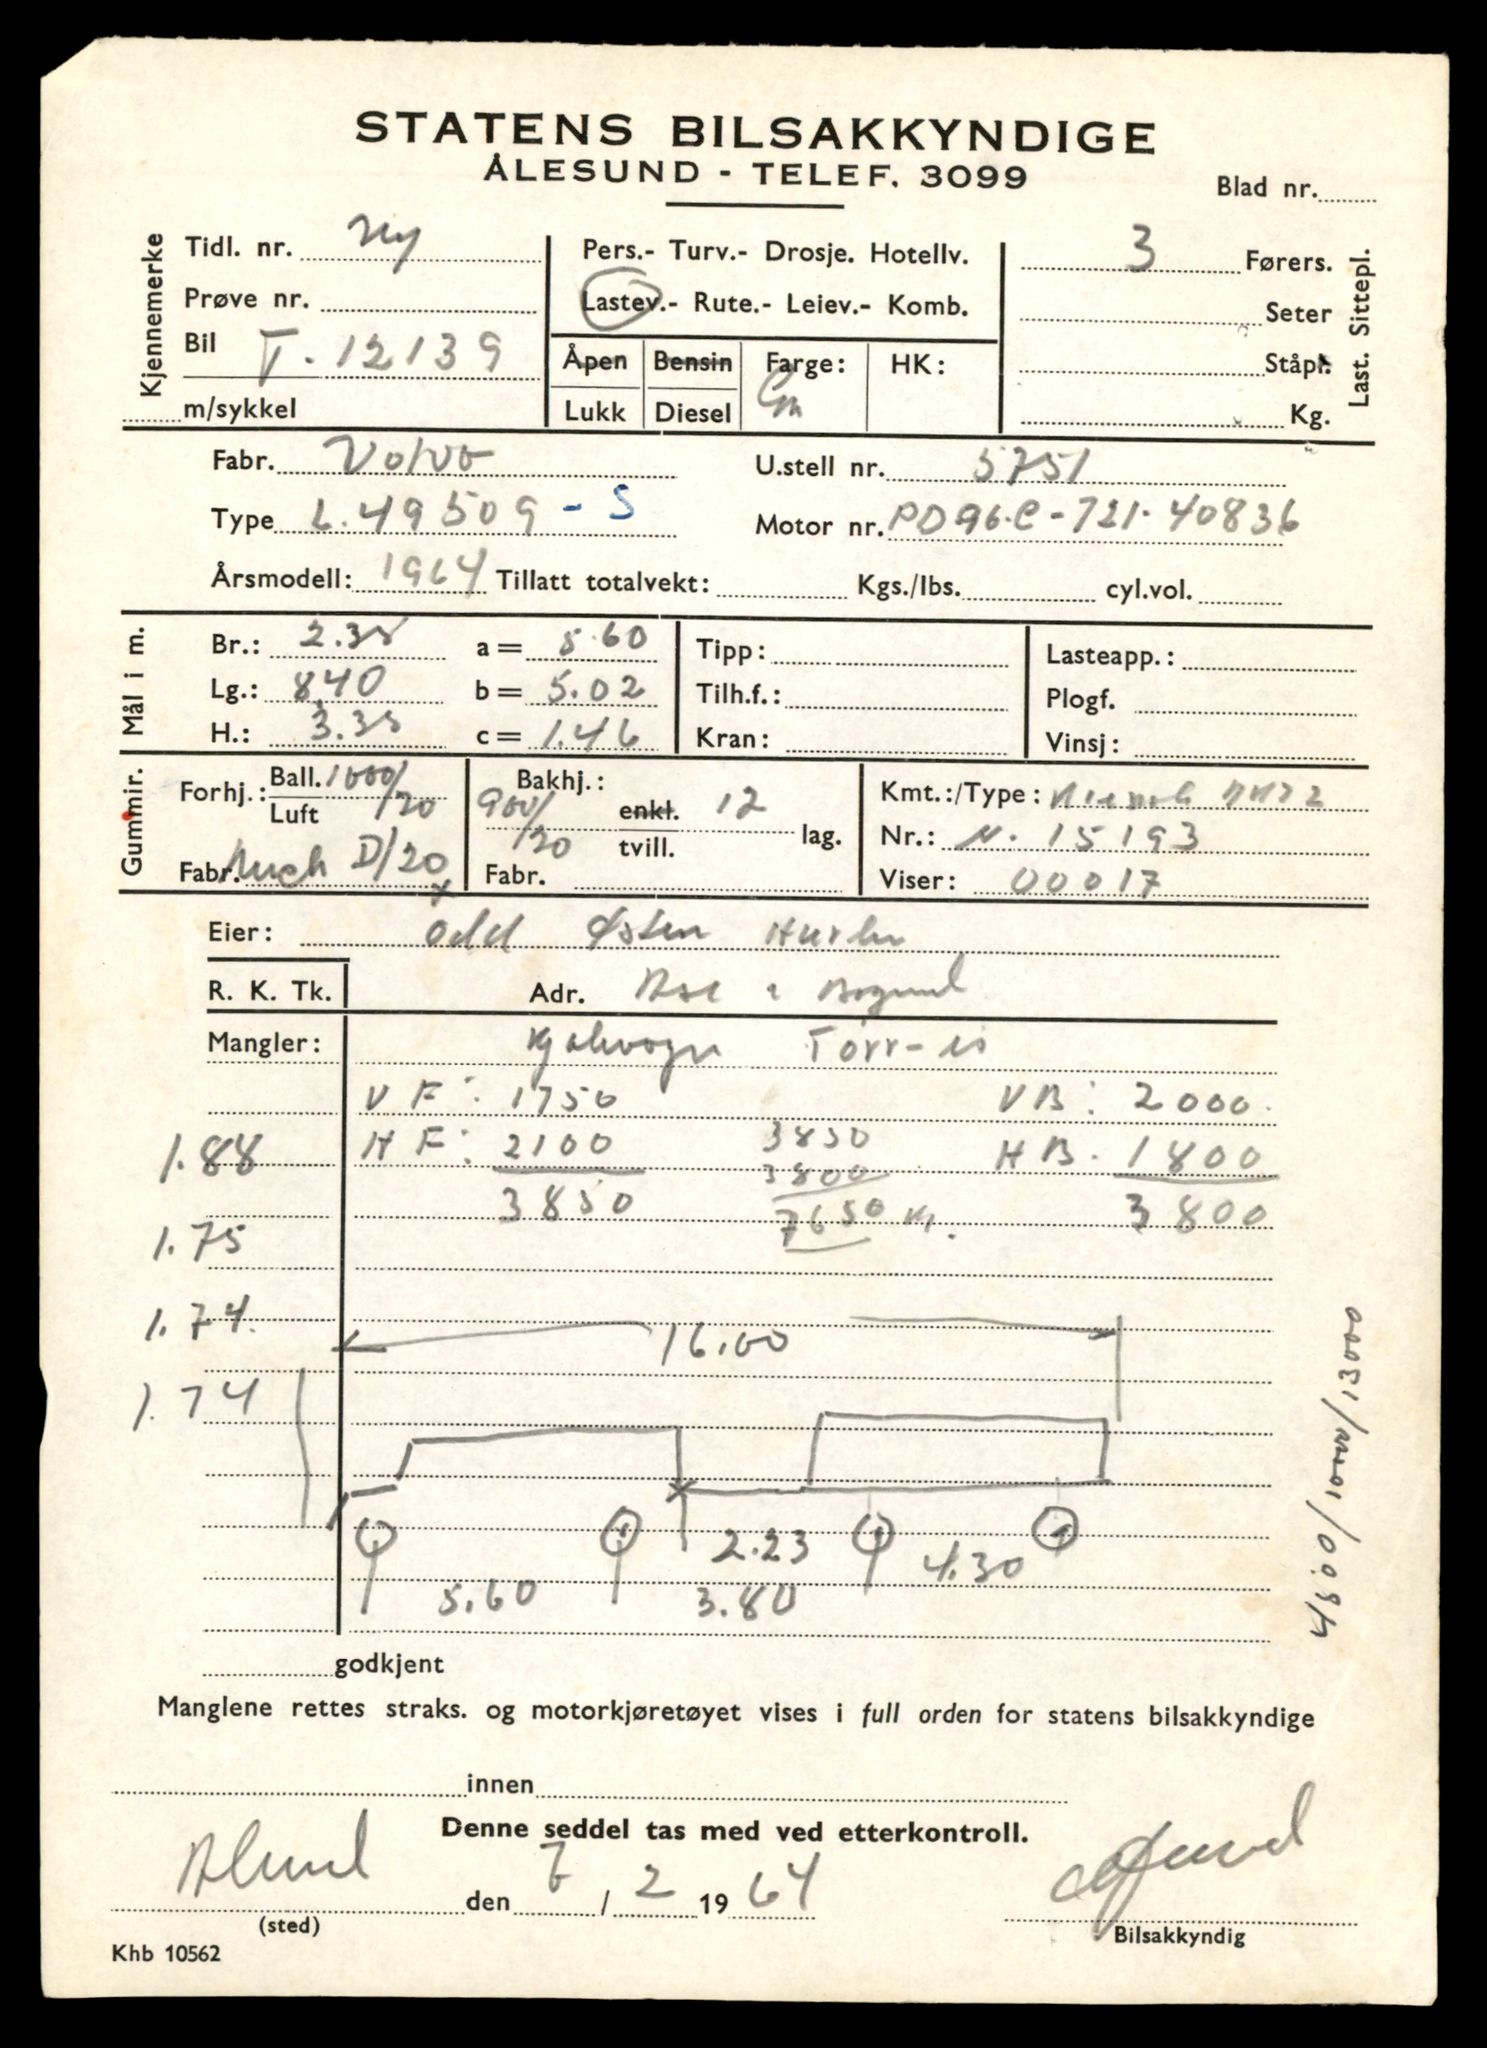 STATENS BILSAKKYNDIGE
ÅLESUND - TELEF. 3099
Blad nr.
Kjennemerke
Tidl. nr. Ny
Prøve nr.
Bil T-12139
m/sykkel
Pers.- Turv.- Drosje. Hotellv.
Lastev.- Rute.- Leiev.- Komb.
Åpen Bensin Farge: HK:
Lukk Diesel
3 Førers.
Seter
Ståpl.
Kg.
Last. Sittepl.
Fabr. Volvo
U.stell nr. 5751
Type L.49509-S
Motor nr. PD96.C-721-40836
Årsmodell: 1964 Tillatt totalvekt: Kgs./lbs. cyl.vol.
Mål i m.
Br.: 2.35 a = 5.60 Tipp: Lasteapp.:
Lg.: 8.40 b = 5.02 Tilh.f.: Plogf.
H.: 3.35 c = 1.46 Kran: Vinsj:
Gummir.
Forhj.: Ball. 1000/20 Bakhj.: Kmt.:/Type:
Luft 900/20 enkl. 12 lag. Nr.: N. 15193
tvill.
Fabr. Mich D/20 x Fabr. Viser: 00017
Eier: Odd Østen
R. K. Tk. Adr. Ase i Borgund
Mangler: Kjølevogn Tørr-is
VF: 1750 VB: 2000
1.88 HF: 2100 3850 HB. 1800
3800
3850 7650 3800
1.75
1.74
16.00
1.74
2.23
4.30
5.60 3.80
4/50/10000/13000
godkjent
Manglene rettes straks. og motorkjøretøyet vises i full orden for statens bilsakkyndige
innen
Denne seddel tas med ved etterkontroll.
Ålesund den 7/2 1964
(sted) Bilsakkyndig
Khb 10562